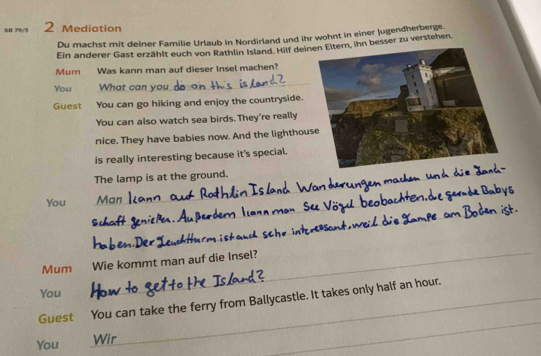 SB 79/5 2 Mediation
Du machst mit deiner Familie Urlaub in Nordirland und ihr wohnt in einer Jugendherberge.
Ein anderer Gast erzählt euch von Rathlin Island. Hilf deinen Eltern, ihn besser zu verstehen.
Mum Was kann man auf dieser Insel machen?
You What can you do on this island?
Guest You can go hiking and enjoy the countryside.
You can also watch sea birds. They're really
nice. They have babies now. And the lighthouse
is really interesting because it's special.
The lamp is at the ground.
You Man kann auf Rathlin Island Wanderungen machen und die Land-
schaft genießen. Außerdem kann man See Vögel beobachten, die gerade Babys
haben. Der Leuchtturm ist auch sehr interessant, weil die Lampe am Boden ist.
Mum Wie kommt man auf die Insel?
You How to get to the Island?
Guest You can take the ferry from Ballycastle. It takes only half an hour.
You Wir